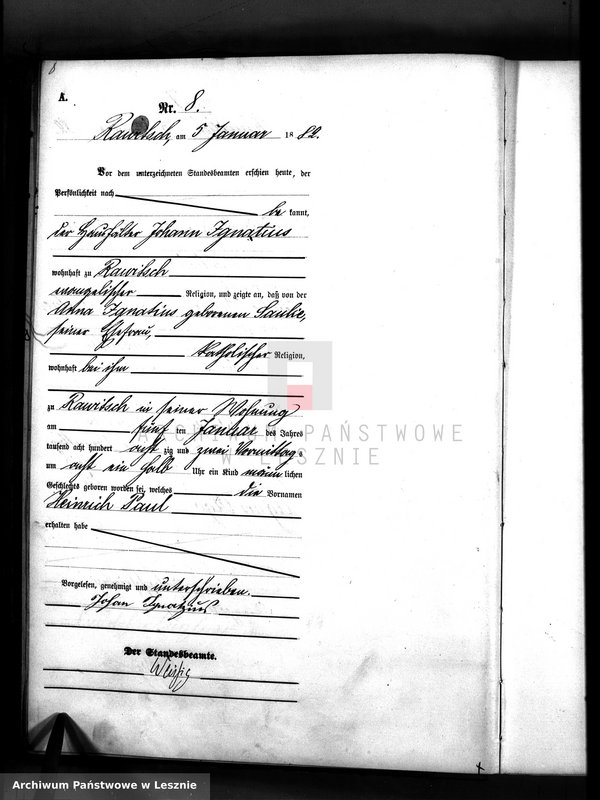 8
A.
Nr. 8.
Rawitsch, am 5 Januar 1882.
Vor dem unterzeichneten Standesbeamten erschien heute, der
Persönlichkeit nach
be kannt,
der Haushälter Johann Ignatius
wohnhaft zu Rawitsch
evangelischer Religion, und zeigte an, daß von der
Anna Ignatius geborenen
seiner Ehefrau,
katholischer Religion,
wohnhaft bei ihm
zu Rawitsch in seiner Wohnung
am fünf ten Januar des Jahres
tausend acht hundert acht zig und zwei Vormittags
um acht ein halb Uhr ein Kind männ lichen
Geschlechts geboren worden sei, welches die Vornamen
Heinrich Paul
erhalten habe
Vorgelesen, genehmigt und unterschrieben.
Johan
Der Standesbeamte.
ARCHIWUM PAŃSTWOWE
W LESZNIE
Archiwum Państwowe w Lesznie